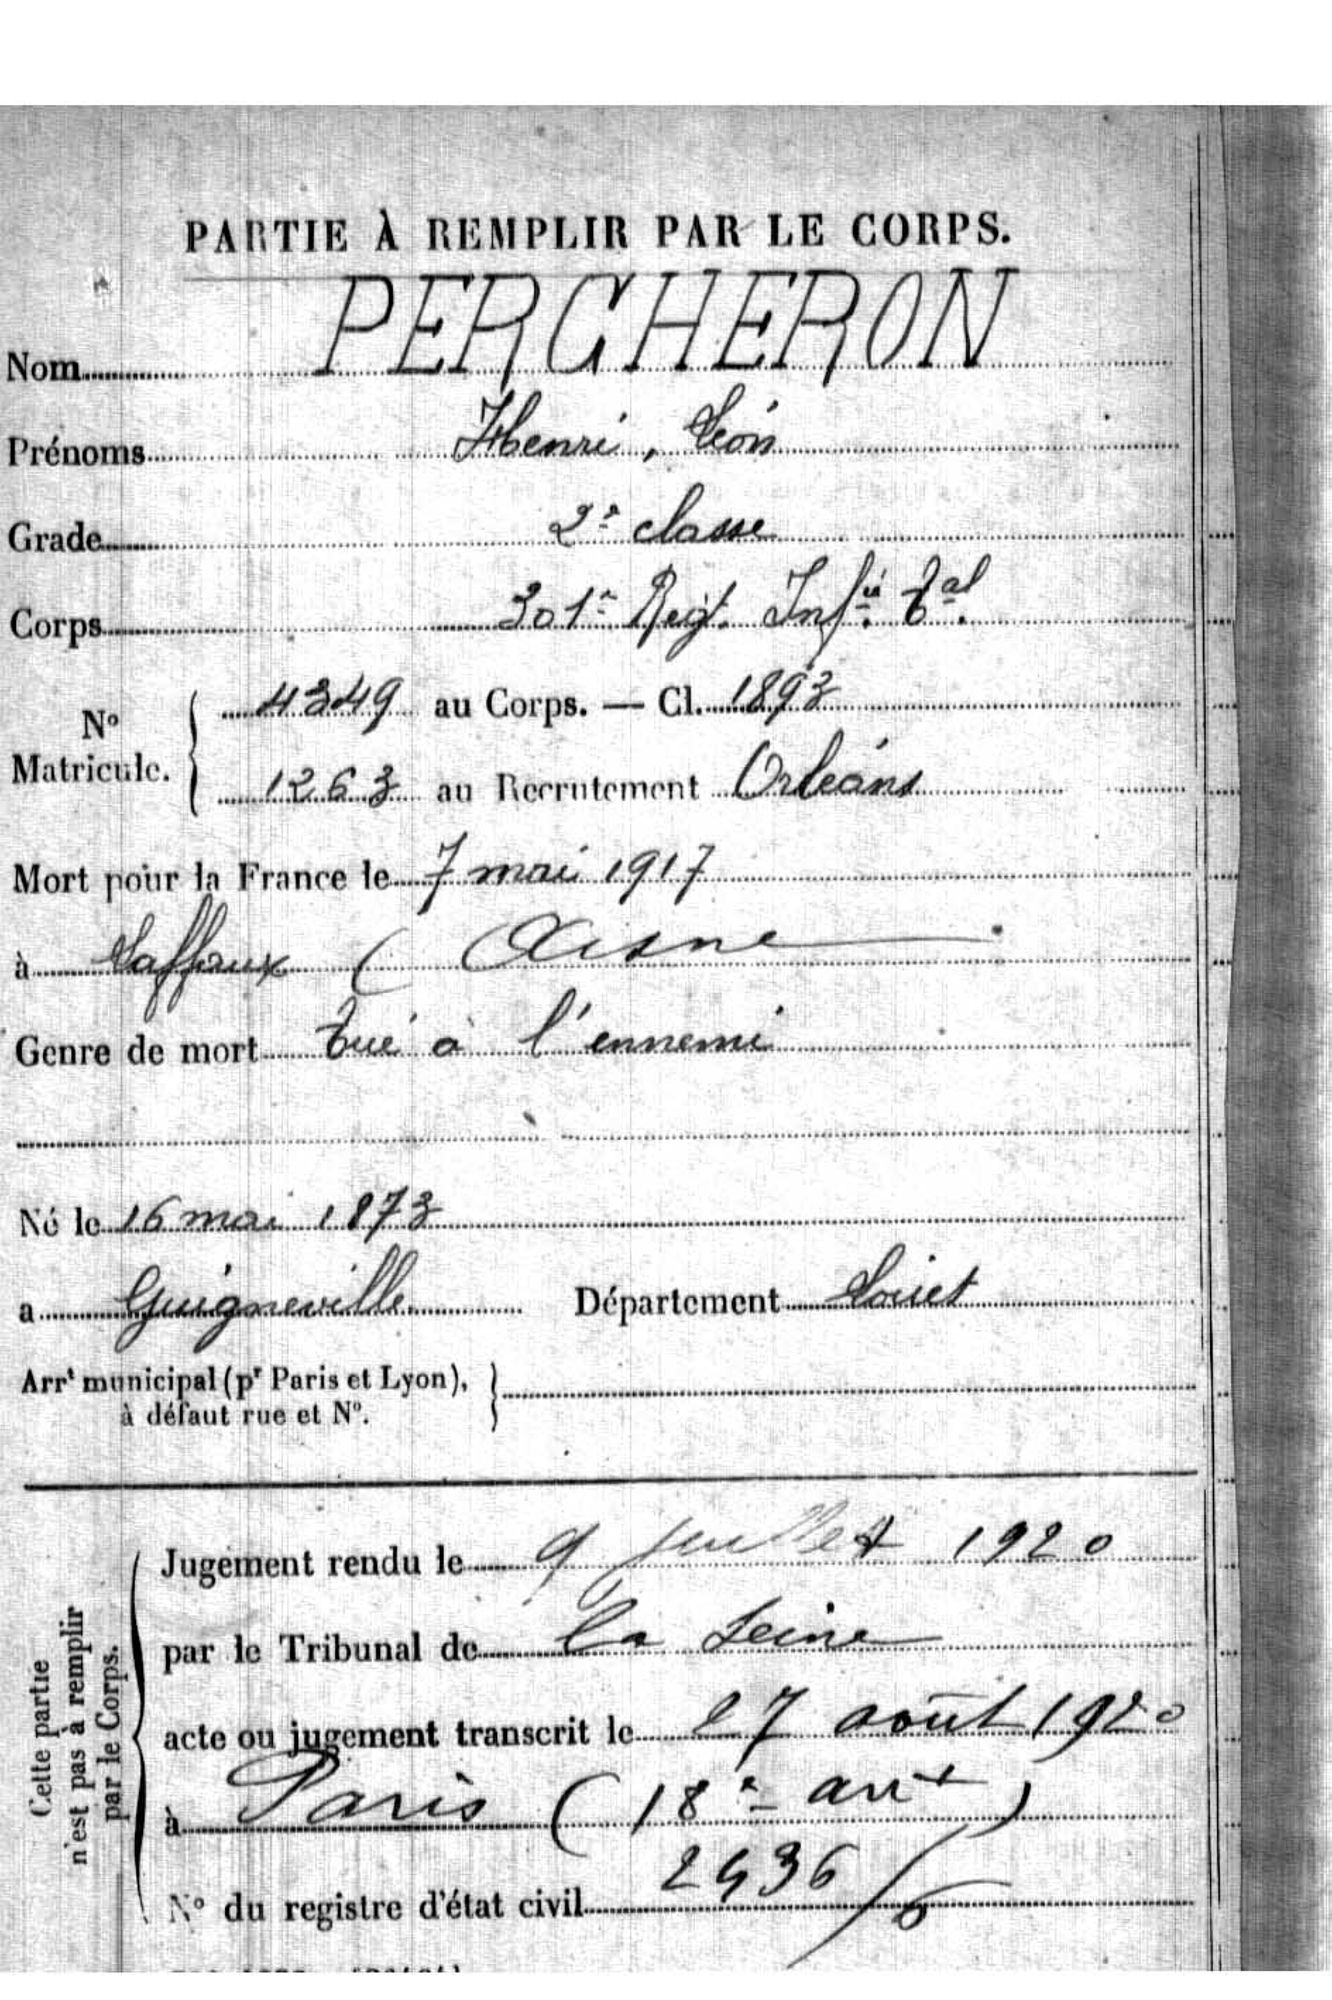 PARTIE À REMPLIR PAR LE CORPS.
Nom PERCHERON
Prénoms Henri, Léon
Grade 2e classe
Corps 301e Regt. Infie. Tal.
No Matricule. 4349 au Corps. — Cl. 1893
1263 au Recrutement Orléans
Mort pour la France le 7 mai 1917
à Laffaux ( Aisne
Genre de mort tué à l'ennemi
Né le 16 mai 1873
à Guigneville Département Loiret
Arrt municipal (pr Paris et Lyon),
à défaut rue et No.
Cette partie
n'est pas à remplir
par le Corps.
Jugement rendu le 9 juillet 1920
par le Tribunal de la Seine
acte ou jugement transcrit le 27 août 1920
à Paris (18e arrt)
No du registre d'état civil 2436